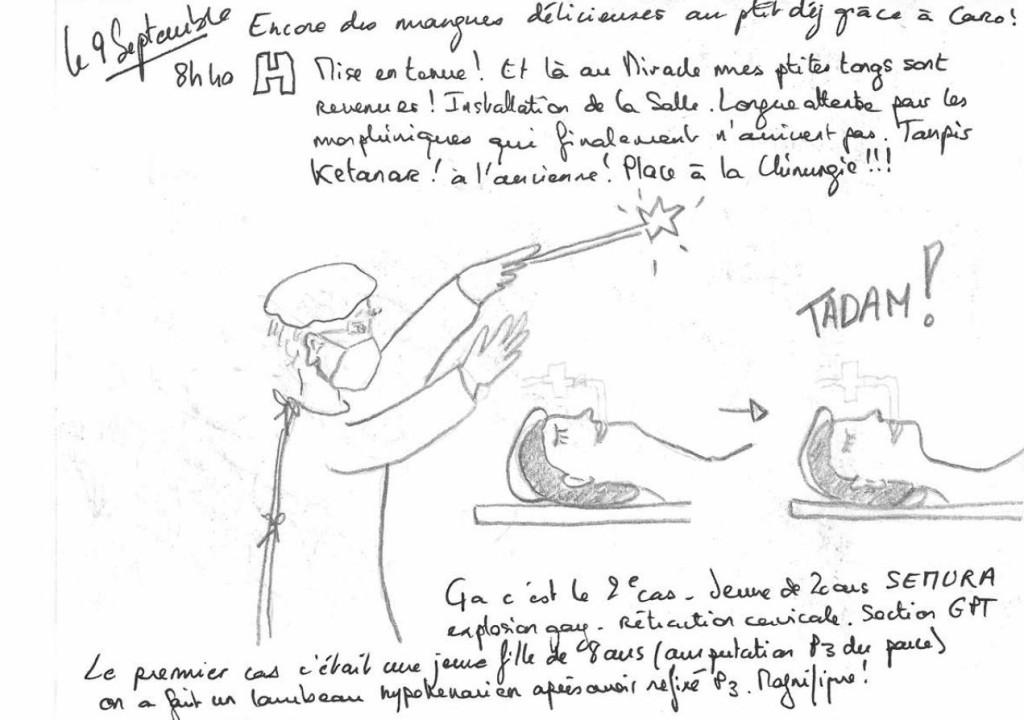 le 9 Septembre
Encore des mangues délicieuses au ptit déj grâce à Caro!
8h40 H Mise en tenue! Et là au Miracle mes ptites tongs sont
revenues! Installation de la Salle. Longue attente par les
morphiniques qui finalement n'arrivent pas. Tanpis
Ketamae! à l'ancienne! Place à la Chirurgie!!!
TADAM!
Ça c'est le 2e cas - Jeune de 20 ans SEMURA
explosion gaz - Rétraction cervicale. Section GPT
Le premier cas c'était une jeune fille de 8 ans (amputation P3 du pouce)
on a fait un lambeau hypothenarien après avoir refixé P3. Magnifique!